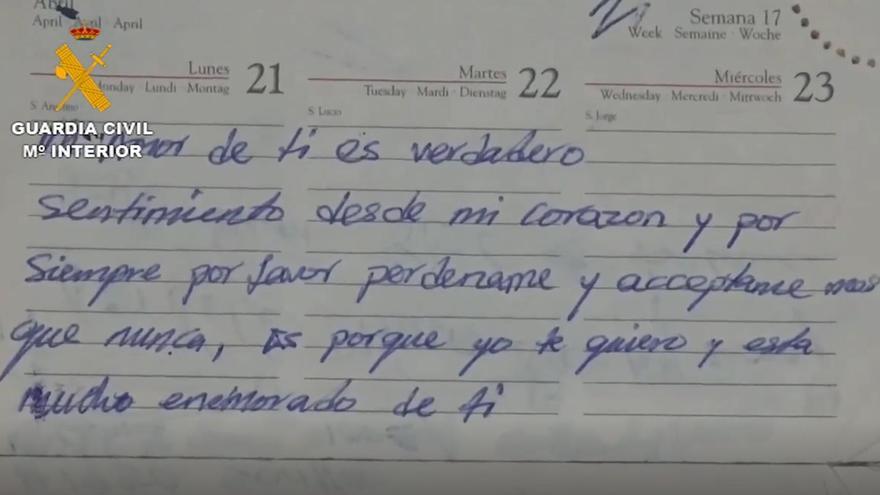 Abril
April Avril April
Semana 17
Week Semaine Woche
Lunes 21
Monday Lundi Montag
Martes 22
Tuesday Mardi Dienstag
Miércoles 23
Wednesday Mercredi Mittwoch
S. Lucio
S. Jorge
GUARDIA CIVIL
Mº INTERIOR
amor de ti es verdadero
sentimiento desde mi corazon y por
siempre por favor perdename y acceptame mas
que nunca, es porque yo te quiero y esta
mucho enemorado de ti